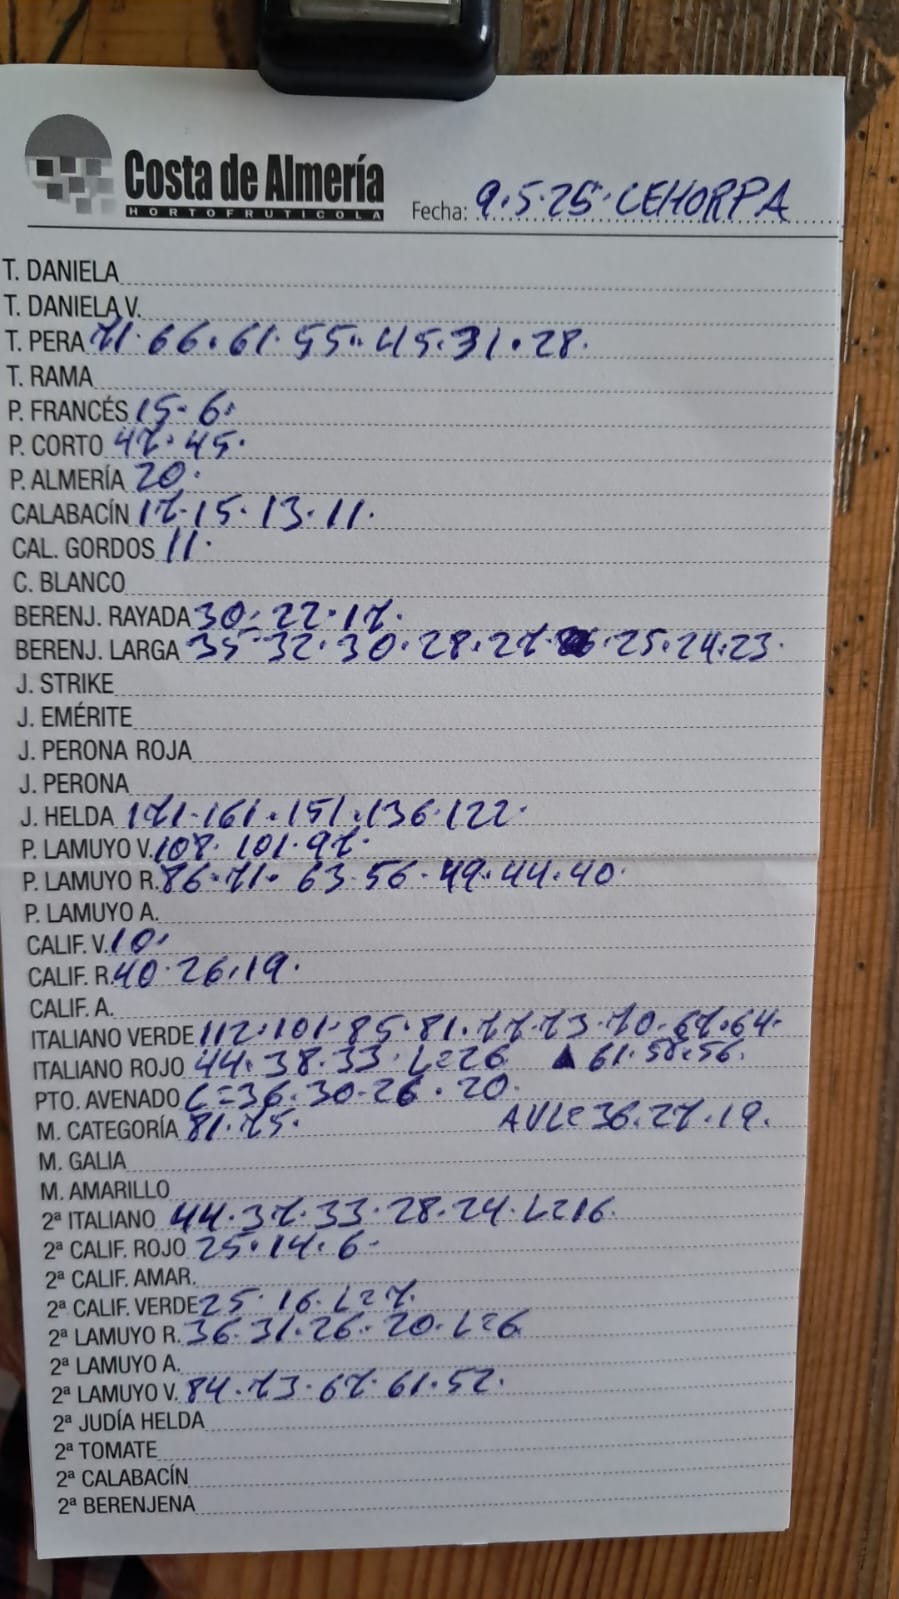 Costa de Almería
HORTOFRUTICOLA
Fecha: 9.5.25. CEHORPA
T. DANIELA
T. DANIELA V.
T. PERA 71. 66. 61. 55. 45. 31. 28.
T. RAMA
P. FRANCÉS 15. 6.
P. CORTO 47. 45.
P. ALMERÍA 20.
CALABACÍN 17. 15. 13. 11.
CAL. GORDOS 11.
C. BLANCO
BERENJ. RAYADA 30. 22. 17.
BERENJ. LARGA 35. 32. 30. 28. 27. 25. 24. 23.
J. STRIKE
J. EMÉRITE
J. PERONA ROJA
J. PERONA
J. HELDA 171. 161. 151. 136. 122.
P. LAMUYO V. 108. 101. 97.
P. LAMUYO R. 86. 71. 63. 56. 49. 44. 40.
P. LAMUYO A.
CALIF. V. 10.
CALIF. R. 40. 26. 19.
CALIF. A.
ITALIANO VERDE 112. 101. 85. 81. 77. 73. 70. 67. 64.
ITALIANO ROJO 44. 38. 33. L=26 ▲ 61. 58. 56.
PTO. AVENADO C=36. 30. 26. 20.
M. CATEGORÍA 81. 75. AVL= 36. 27. 19.
M. GALIA
M. AMARILLO
2ª ITALIANO 44. 37. 33. 28. 24. L=16.
2ª CALIF. ROJO 25. 14. 6.
2ª CALIF. AMAR.
2ª CALIF. VERDE 25. 16. L=7.
2ª LAMUYO R. 36. 31. 26. 20. L=6
2ª LAMUYO A.
2ª LAMUYO V. 84. 73. 67. 61. 52.
2ª JUDÍA HELDA
2ª TOMATE
2ª CALABACÍN
2ª BERENJENA